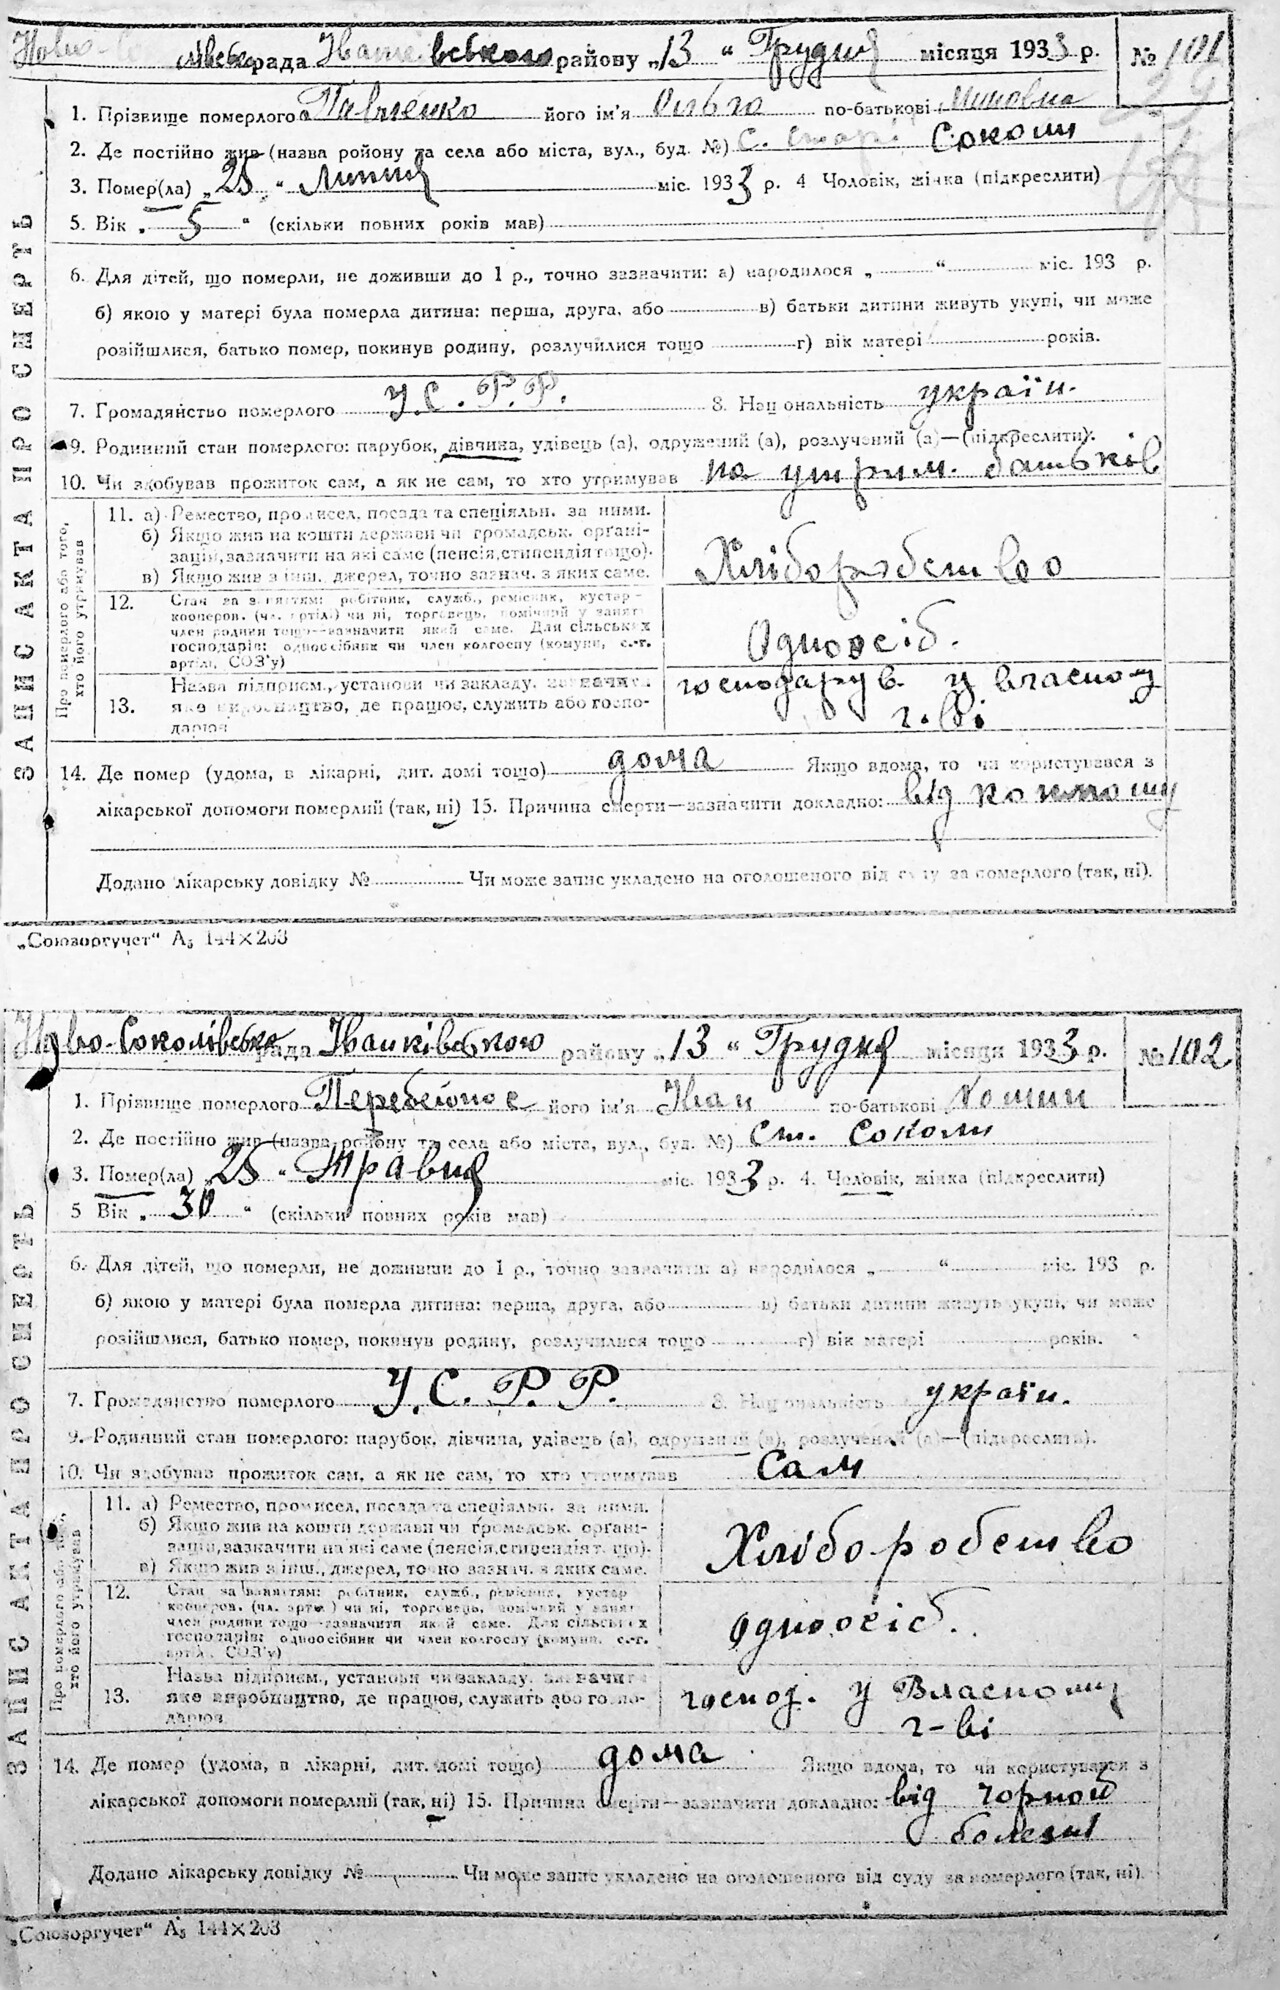 рада Іванківського району „13“ Грудня місяця 1933 р. № 101
1. Прізвище померлого Павленко його ім'я Ольга по-батькові
2. Де постійно жив (назва ройону та села або міста, вул., буд. №) с. Старі Соколи
3. Помер(ла) „25“ Липня міс. 1933 р. 4 Чоловік, жінка (підкреслити)
5. Вік „5“ (скільки повних років мав)
6. Для дітей, що померли, не доживши до 1 р., точно зазначити: а) народилося „ “ міс. 193 р.
б) якою у матері була померла дитина: перша, друга, або в) батьки дитини живуть укупі, чи може
розійшлися, батько помер, покинув родину, розлучилися тощо г) вік матері років.
7. Громадянство померлого У.С.Р.Р. 8. Національність україн.
9. Родинний стан померлого: парубок, дівчина, удівець (а), одружений (а), розлучений (а)—(підкреслити).
10. Чи здобував прожиток сам, а як не сам, то хто утримував на утрим. батьків
ЗАПИС АКТА ПРО СМЕРТЬ
Про померлого або того,
хто його утримував
11. а) Ремество, промисел, посада та спеціяльн. за ними.
б) Якщо жив на кошти держави чи громадськ. органі-
зацій, зазначити на які саме (пенсія, стипендія тощо).
в) Якщо жив з інш. джерел, точно зазнач. з яких саме.
Хліборобство
12. Стан за заняттям: робітник, служб., ремісник, кустар-
кооперов. (чл. артілі) чи ні, торговець, помічний у занят.
член родини тощо—зазначити який саме. Для сільських
господарів: одноосібник чи член колгоспу (комуни, с.-г.
артілі, СОЗ'у)
Одноосіб.
13. Назва підприєм., установи чи закладу, зазначити
яке виробництво, де працює, служить або госпо-
дарює
господарув. у власному
г-ві
14. Де помер (удома, в лікарні, дит. домі тощо) дома Якщо вдома, то чи користувався з
лікарської допомоги померлий (так, ні) 15. Причина смерти—зазначити докладно: від
Додано лікарську довідку № Чи може запис укладено на оголошеного від суду за померлого (так, ні).
„Союзоргучет“ А₅ 144×203
Ново-Соколівська рада Іванківського району „13“ Грудня місяця 1933 р. № 102
1. Прізвище померлого його ім'я Іван по-батькові
2. Де постійно жив (назва ройону та села або міста, вул., буд. №) Ст. Соколи
3. Помер(ла) „25“ Травня міс. 1933 р. 4. Чоловік, жінка (підкреслити)
5 Вік „30“ (скільки повних років мав)
6. Для дітей, що померли, не доживши до 1 р., точно зазначити: а) народилося „ “ міс. 193 р.
б) якою у матері була померла дитина: перша, друга, або в) батьки дитини живуть укупі, чи може
розійшлися, батько помер, покинув родину, розлучилися тощо г) вік матері років.
7. Громадянство померлого У.С.Р.Р. 8. Національність україн.
9. Родинний стан померлого: парубок, дівчина, удівець (а), одружений (а), розлучений (а)—(підкреслити).
10. Чи здобував прожиток сам, а як не сам, то хто утримував Сам
ЗАПИС АКТА ПРО СМЕРТЬ
Про померлого або того,
хто його утримував
11. а) Ремество, промисел, посада та спеціяльн. за ними.
б) Якщо жив на кошти держави чи громадськ. органі-
зацій, зазначити на які саме (пенсія, стипендія тощо).
в) Якщо жив з інш. джерел, точно зазнач. з яких саме.
Хліборобство
12. Стан за заняттям: робітник, служб., ремісник, кустар
кооперов. (чл. артілі) чи ні, торговець, помічний у занят.
член родини тощо—зазначити який саме. Для сільських
господарів: одноосібник чи член колгоспу (комуни, с.-г.
артілі, СОЗ'у)
Одноосіб.
13. Назва підприєм., установи чи закладу, зазначити
яке виробництво, де працює, служить або госпо-
дарює
господ. у Власному
г-ві
14. Де помер (удома, в лікарні, дит. домі тощо) дома Якщо вдома, то чи користувався з
лікарської допомоги померлий (так, ні) 15. Причина смерти—зазначити докладно: від чорной
болезні
Додано лікарську довідку № Чи може запис укладено на оголошеного від суду за померлого (так, ні).
„Союзоргучет“ А₅ 144×203